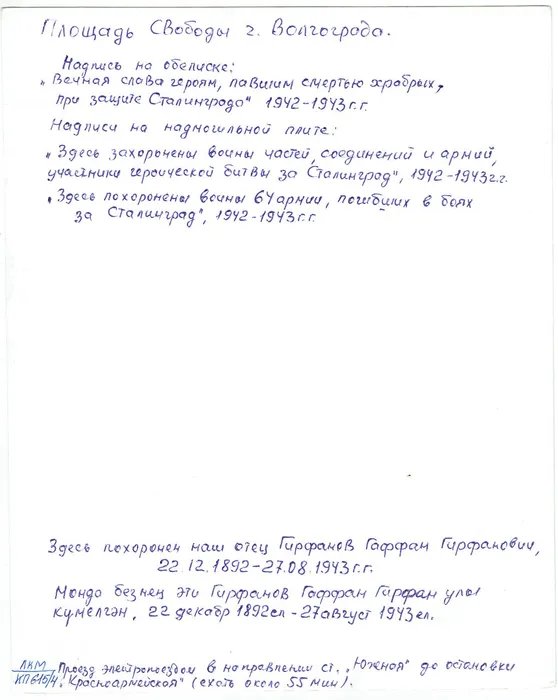 Площадь Свободы г. Волгограда.
Надпись на обелиске:
„Вечная слава героям, павшим смертью храбрых,
при защите Сталинграда" 1942-1943 г.г.
Надписи на надмогильной плите:
„Здесь захоронены воины частей, соединений и армий,
участники героической битвы за Сталинград", 1942-1943 г.г.
„Здесь похоронены воины 64 армии, погибших в боях
за Сталинград", 1942-1943 г.г.
Здесь похоронен наш отец Гирфанов Гаффан Гирфанович,
22.12.1892-27.08.1943 г.г.
Мондо безнец эти Гирфанов Гаффан Гирфан улы
кумелгэн, 22 декабр 1892 ел - 27 август 1943 ел.
ЛКМ
КП 615/4
Проезд электропоездом в направлении ст. „Южная" до остановки
„Красноармейская" (ехать около 55 мин).